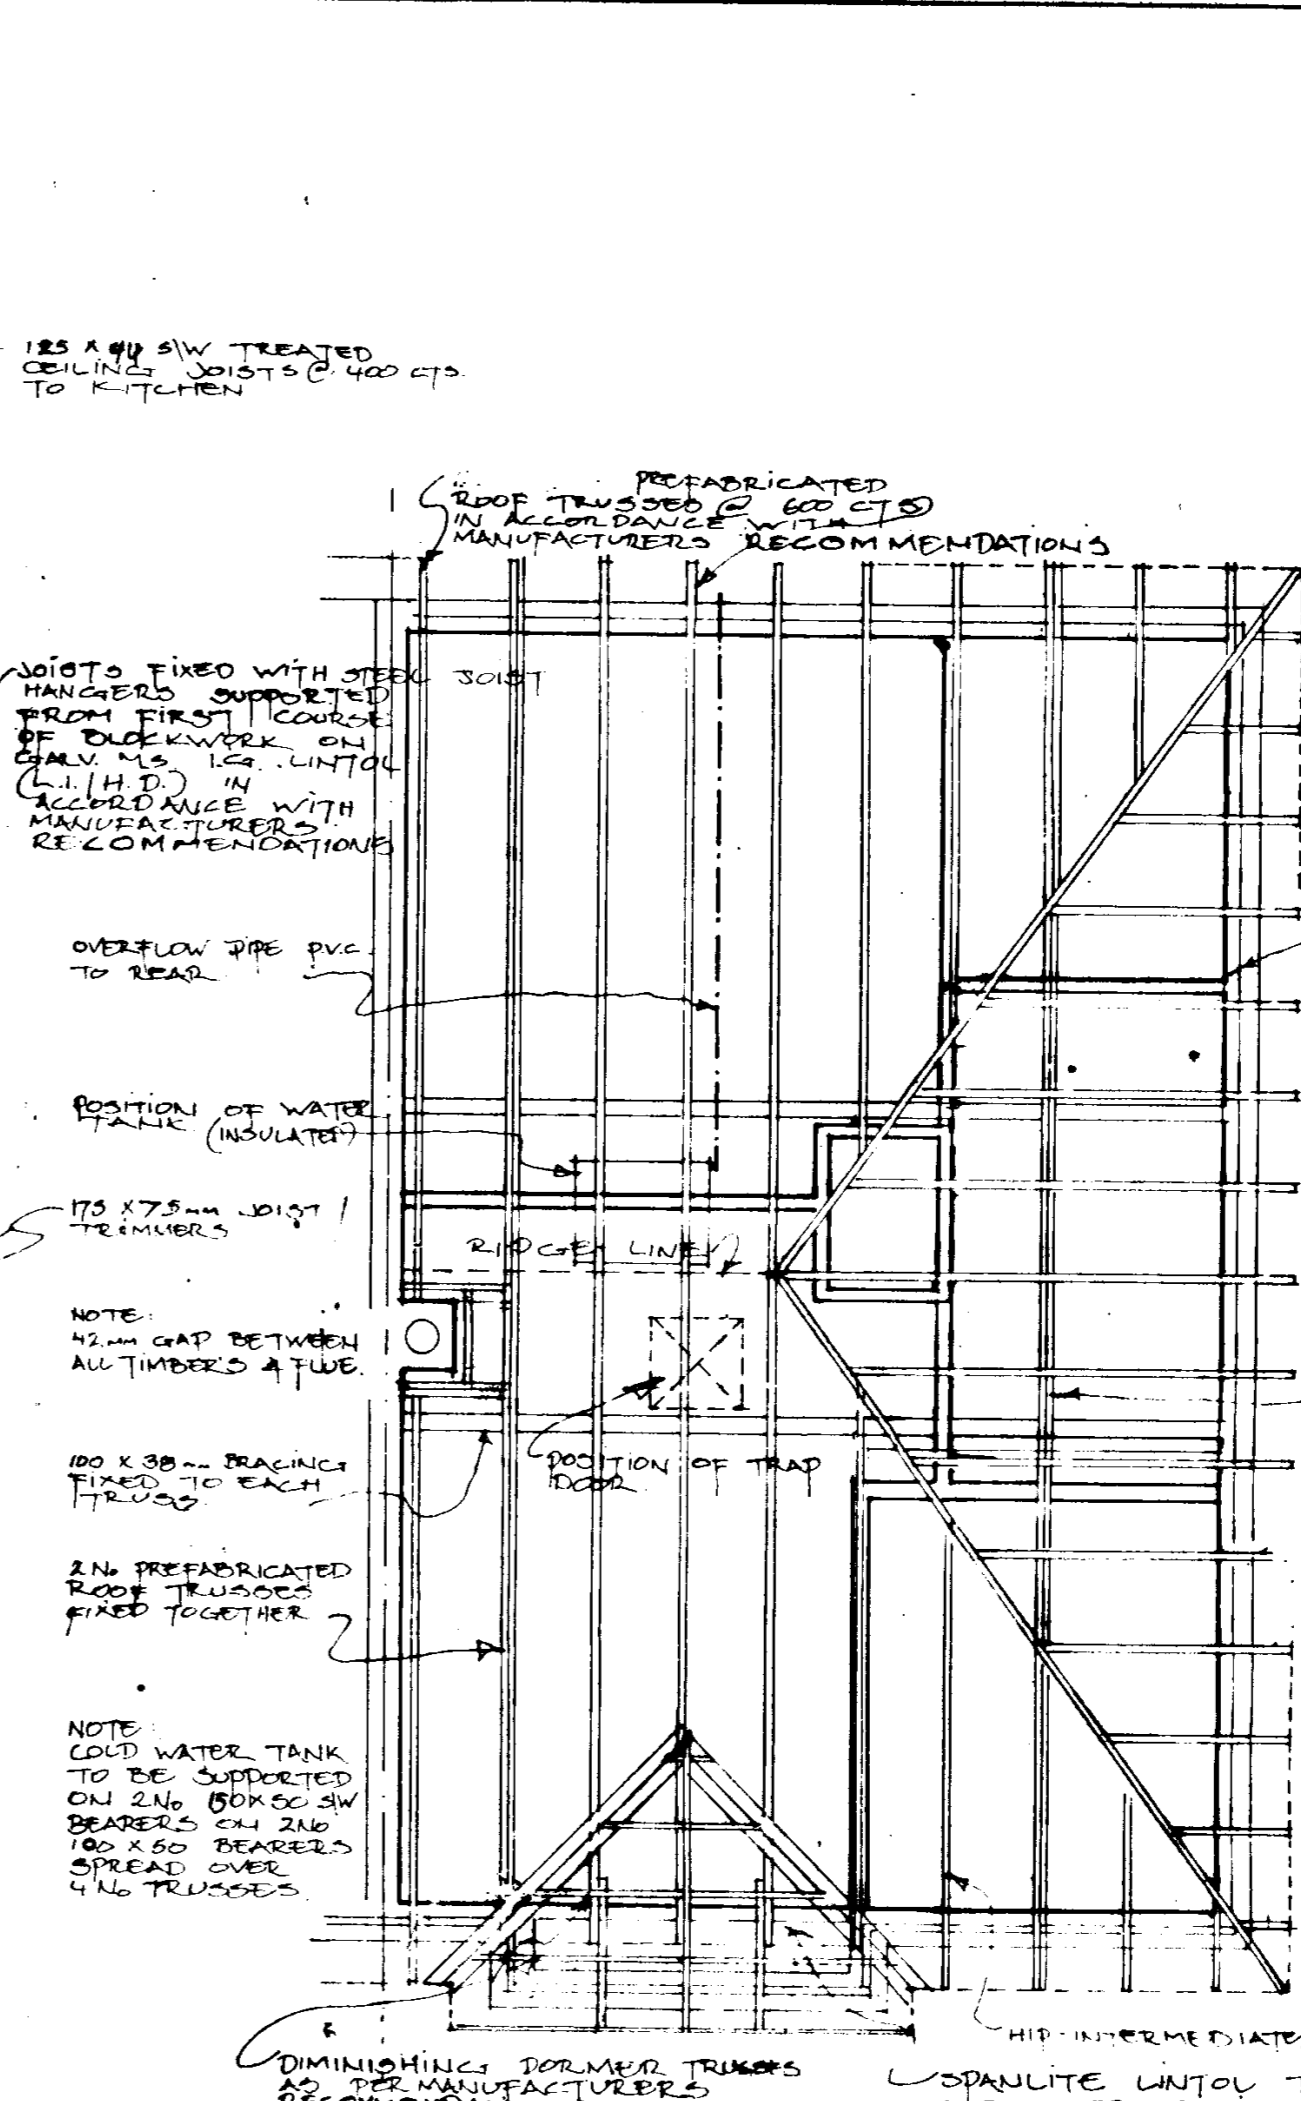 125 X 44 S/W TREATED
CEILING JOISTS @ 400 CTS.
TO KITCHEN
PREFABRICATED
ROOF TRUSSES @ 600 CTS
IN ACCORDANCE WITH
MANUFACTURERS RECOMMENDATIONS
JOISTS FIXED WITH STEEL JOIST
HANGERS SUPPORTED
FROM FIRST COURSE
OF BLOCKWORK ON
GALV. MS I.G. LINTOL
(L.1./H.D.) IN
ACCORDANCE WITH
MANUFACTURERS
RECOMMENDATIONS
OVERFLOW PIPE P.V.C.
TO REAR
POSITION OF WATER
TANK (INSULATED)
175 X 75mm JOIST /
TRIMMERS
RIDGE LINE
NOTE:
42mm GAP BETWEEN
ALL TIMBERS & FLUE.
100 X 38mm BRACING
FIXED TO EACH
TRUSS
POSITION OF TRAP
DOOR
2 No PREFABRICATED
ROOF TRUSSES
FIXED TOGETHER
NOTE:
COLD WATER TANK
TO BE SUPPORTED
ON 2 No 150X50 S/W
BEARERS ON 2 No
100 X 50 BEARERS
SPREAD OVER
4 No TRUSSES
HIP INTERMEDIATE
DIMINISHING DORMER TRUSSES
AS PER MANUFACTURERS
SPANLITE LINTOL